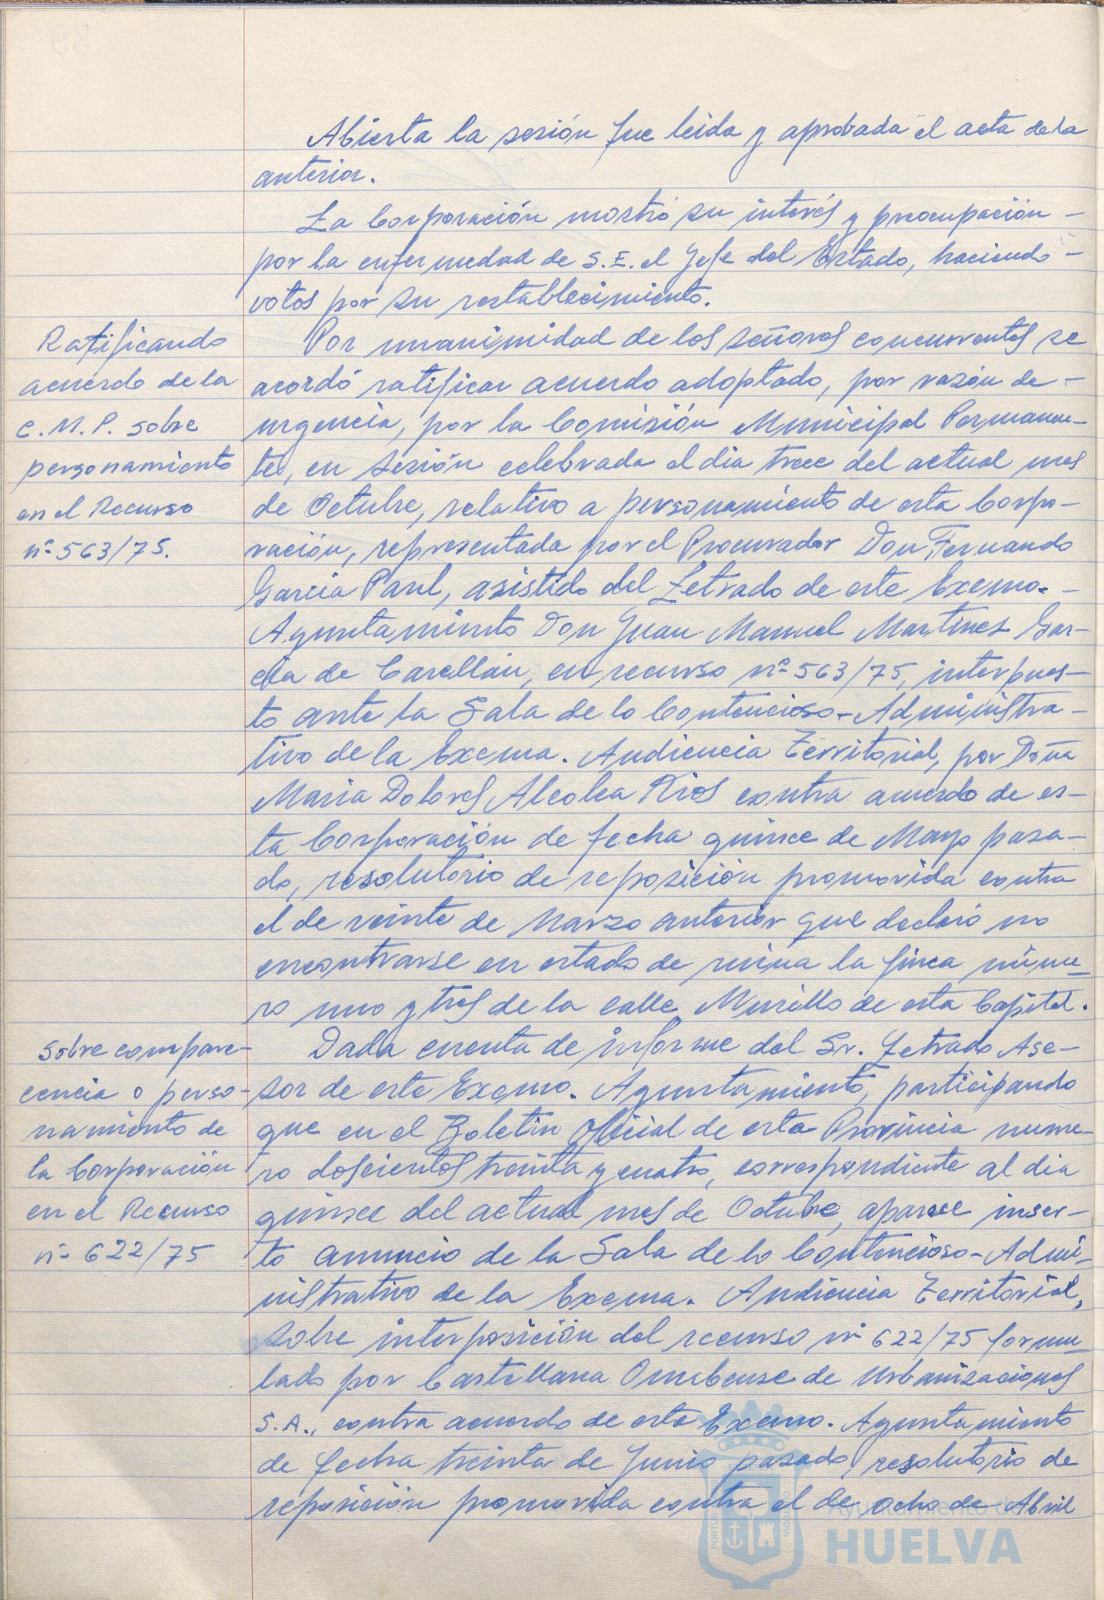 Abierta la sesión fue leida y aprobada el acta de la
anterior.
La Corporación mostró su interés y preocupación -
por la enfermedad de S.E. el Jefe del Estado, haciendo -
votos por su restablecimiento.
Ratificando
acuerdo de la
C.M.P. sobre
personamiento
en el Recurso
nº 563/75.
Por unanimidad de los señores concurrentes se
acordó ratificar acuerdo adoptado, por razón de -
urgencia, por la Comisión Municipal Permanen-
te, en sesión celebrada el dia trece del actual mes
de Octubre, relativo a personamiento de esta Corpo-
ración, representada por el Procurador Don Fernando
Garcia Parul, asistido del Letrado de este Excmo. -
Ayuntamiento Don Juan Manuel Martinez Gar-
cia de Carellán, en recurso nº 563/75, interpues-
to ante la Sala de lo Contencioso-Administra-
tivo de la Excma. Audiencia Territorial, por Doña
Maria Dolores Alcolea Rios contra acuerdo de es-
ta Corporación de fecha quince de Mayo pasa-
do, resolutorio de reposición promovida contra
el de veinte de Marzo anterior que declaró no
encontrarse en estado de ruina la finca núme-
ro uno y tres de la calle Murillo de esta Capital.
Sobre compare-
cencia o perso-
namiento de
la Corporación
en el Recurso
nº 622/75
Dada cuenta de informe del Sr. Letrado Ase-
sor de este Excmo. Ayuntamiento, participando
que en el Boletin Oficial de esta Provincia nume-
ro doscientos treinta y cuatro, correspondiente al dia
quince del actual mes de Octubre, aparece inser-
to anuncio de la Sala de lo Contencioso-Admi-
nistrativo de la Excma. Audiencia Territorial,
sobre interposición del recurso nº 622/75 formu-
lado por Castellana Onubense de Urbanizaciones
S.A., contra acuerdo de este Excmo. Ayuntamiento
de fecha treinta de Junio pasado, resolutorio de
reposición promovida contra el de ocho de Abril
Ayuntamiento de
HUELVA